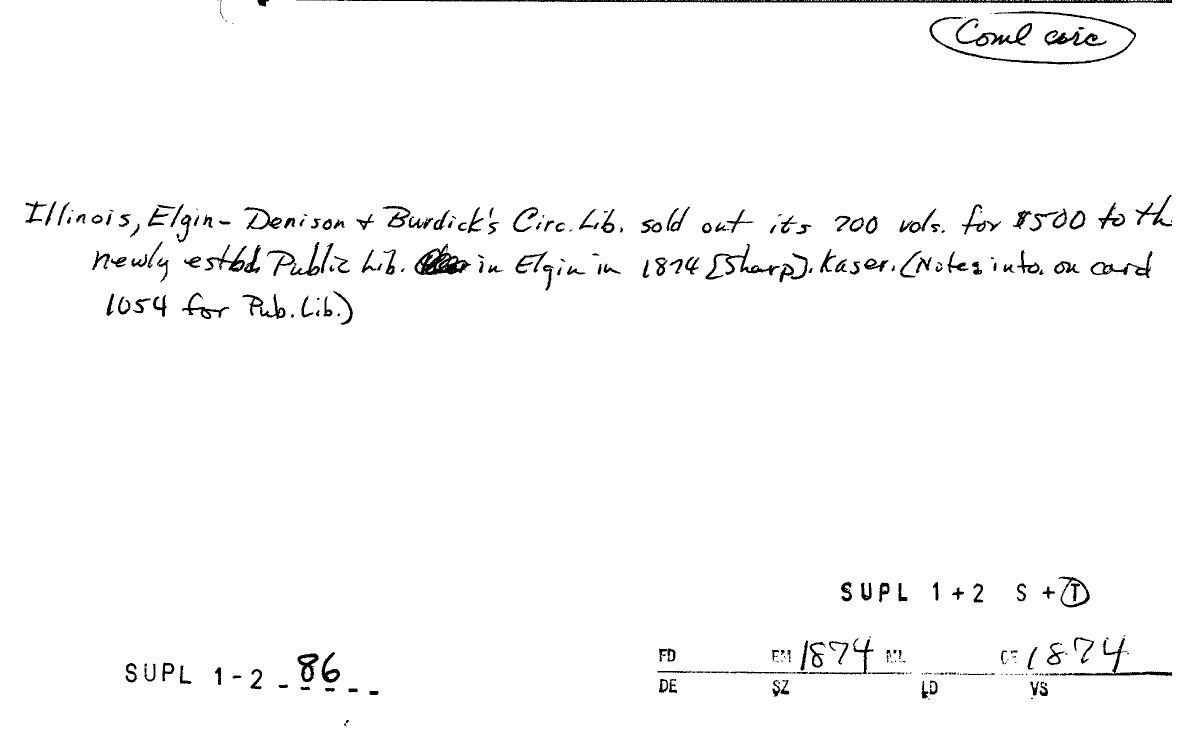 Coml circ
Illinois, Elgin- Denison + Burdick's Circ. Lib. sold out its 700 vols. for $500 to th
newly estbd. Public Lib. in Elgin in 1874 [Sharp]. Kaser. (Notes info. on card
1054 for Pub. Lib.)
SUPL 1+2 S + T
SUPL 1-2 - 86 - -
FD EM 1874 ML CE 1874
DE SZ LD VS